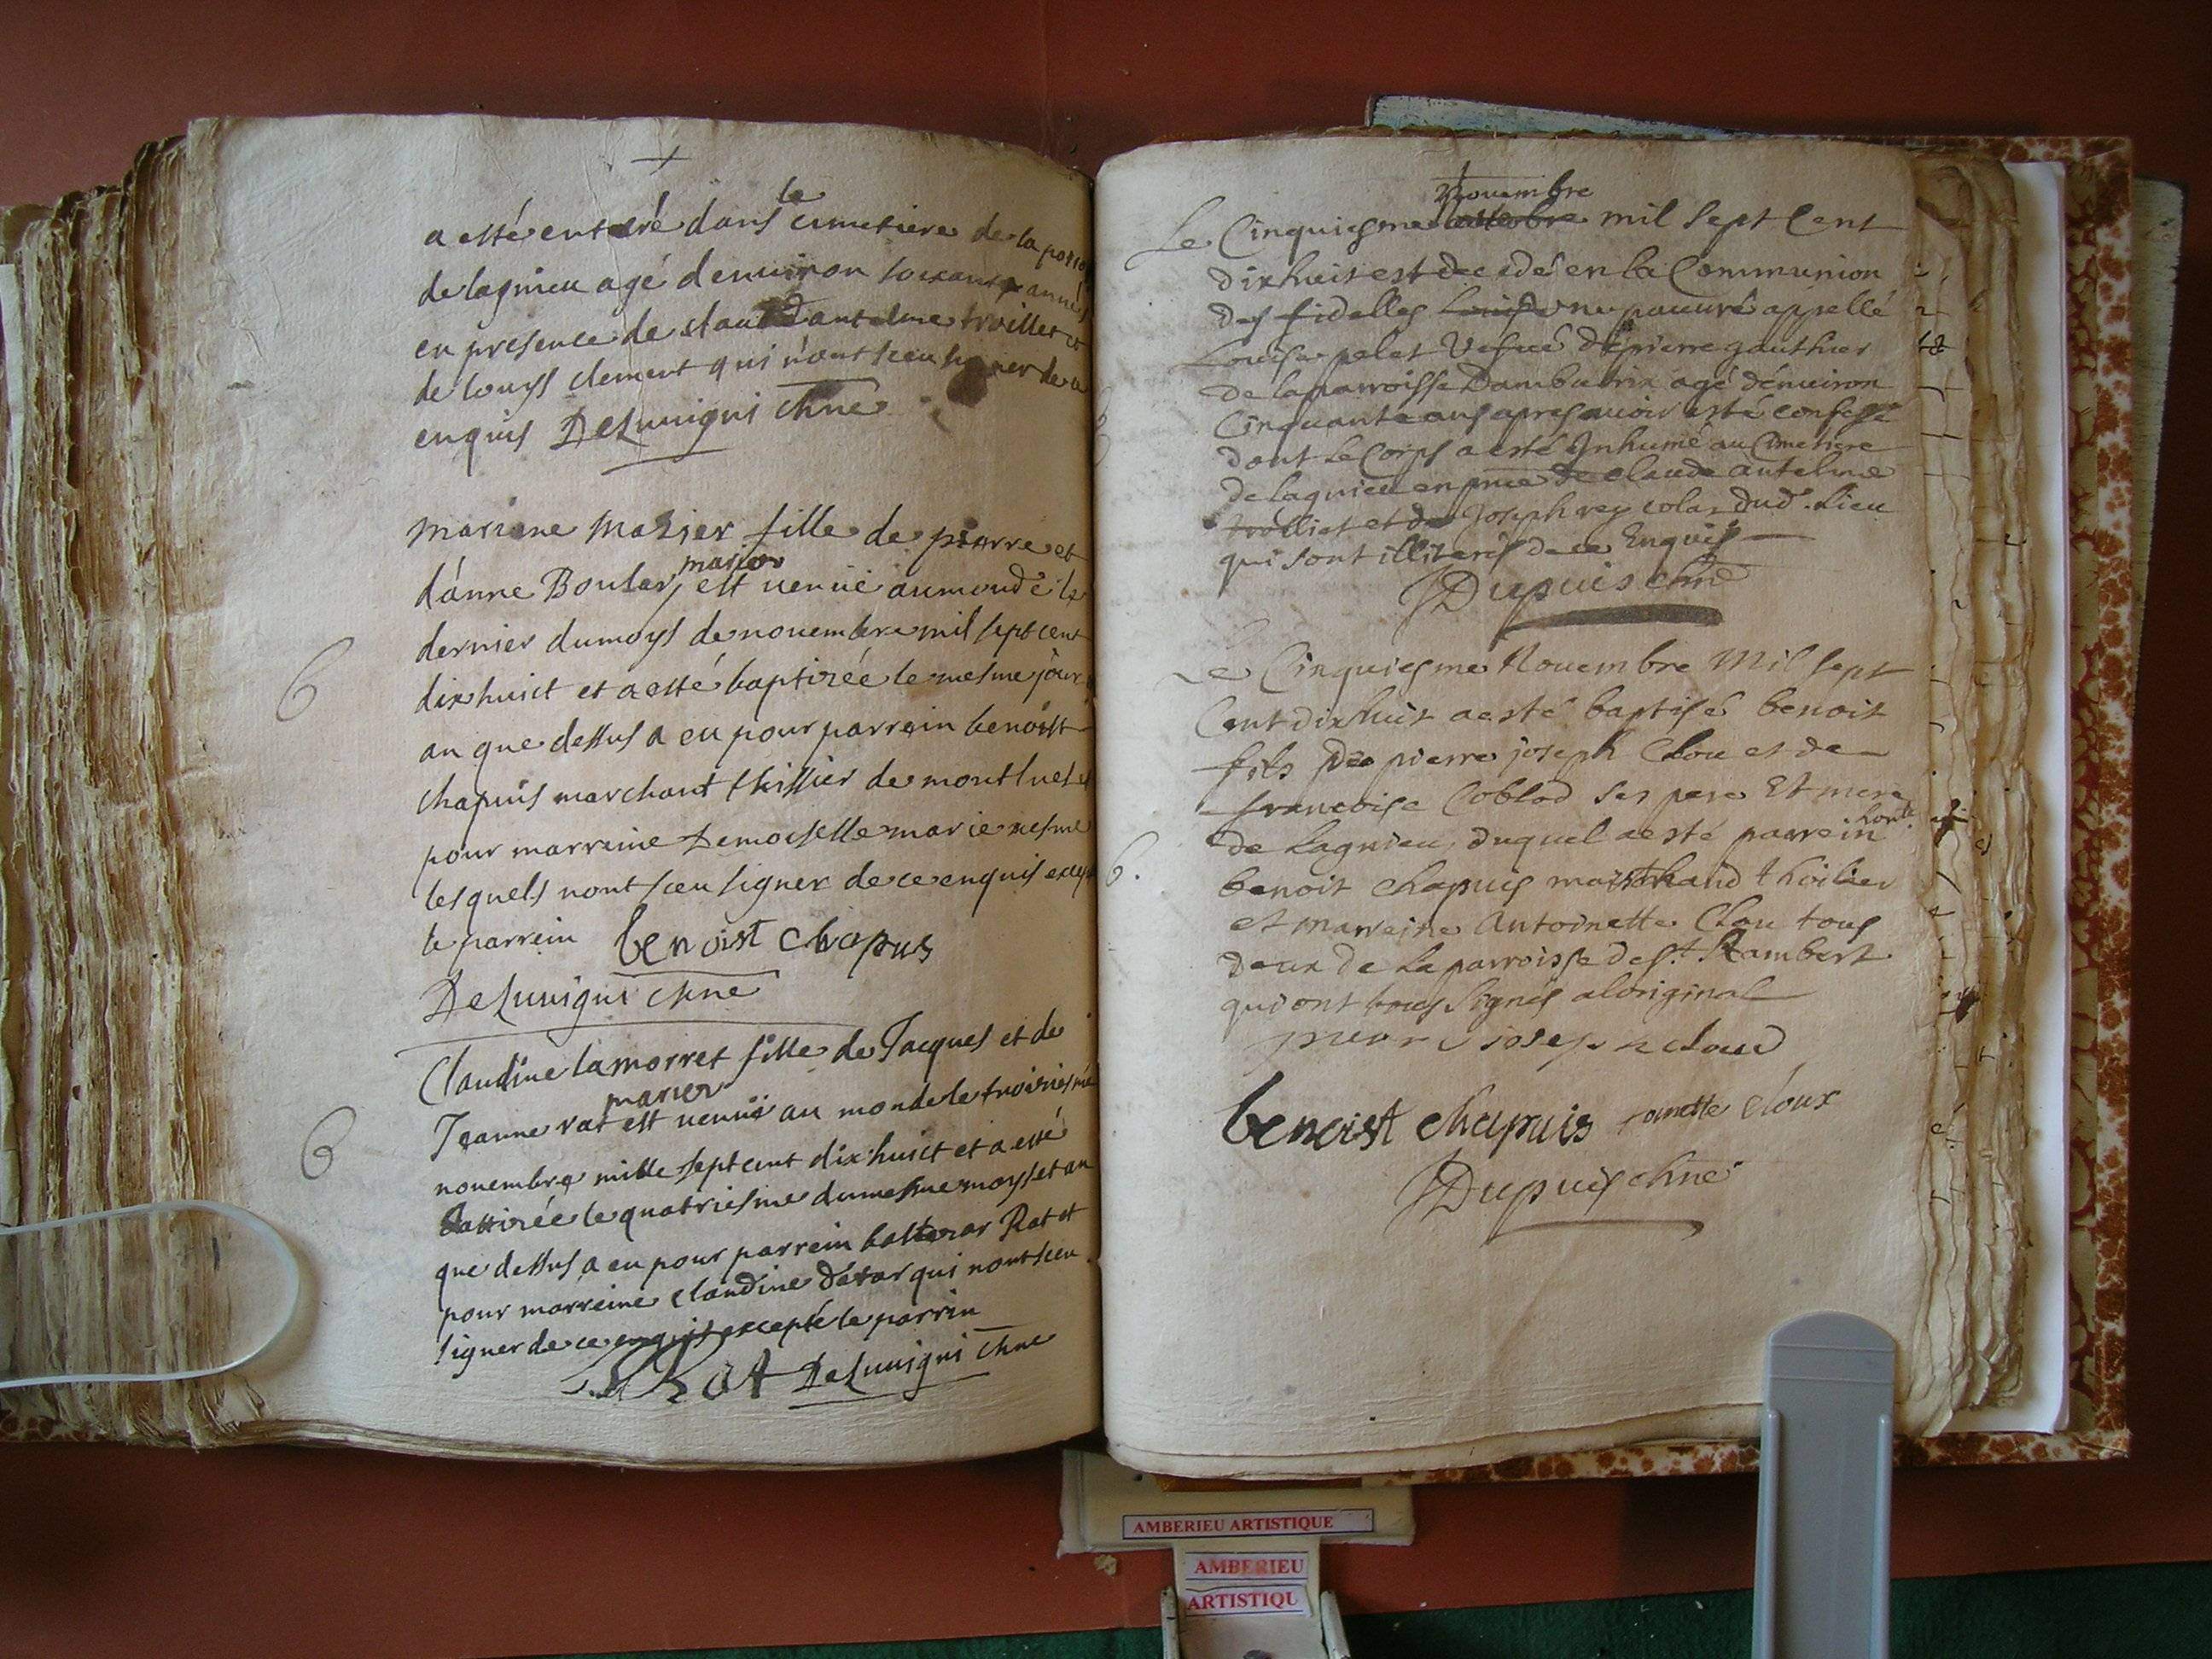 a esté enteré dans le cimetiere de la
de lagnieu agé denuiron soixante années
en presence de claude antelme troillet et
de louys clement qui n'ont sceu signer de ce
enquis DeLuuigni chne
mariane mazier fille de pierre et
d'anne Boular mariez est venuë au monde le
dernier du moys de nouembre mil sept cent
dix huict et a esté baptizée le mesme jour
6
an que dessus a eu pour parrein benoist
chapuis marchant thissier de montluel et
pour marreine Demoiselle marie
lesquels nont sceu signer de ce enquis excep
le parrein benoist chapuis
DeLuuigni chne
Claudine lamorret fille de Jacques et de
Jeanne rat mariez est venuë au monde le troiziesme
6
nouembre mille sept cent dix huict et a esté
battizée le quatriesme du mesme moys et an
que dessus a eu pour parrein baltezar Rat et
pour marreine claudine dézar qui nont sceu
signer de ce enquis excepté le parrin
Rat DeLuuigni chne
Nouembre
Le Cinquiesme octobre mil sept Cent
dixhuit est decedé en la Communion
des fidelles Louise une pauuré appellé
Louise pelet Vefué de pierre gauthier
de la parroisse Dambutrix agé dénuiron
Cinquante ans apres auoir esté confessé
dont Le Corps a esté Inhumé au Cimetiere
de Lagnieu en pnce de claude antelme
trolliet et de Joseph rey colas dud. Lieu
qui sont illiterés de ce Enquis
Dupuis chne
Le Cinquiesme Nouembre Mil sept
Cent dixhuit a esté baptisé benoit
fils de pierre joseph Clou et de
francoise Coblod ses pere Et mere
de Lagnieu, duquel a esté parrein honte.
6.
benoit chapuis marchand thoilier
et marreine Antoinette Clou tous
deux de La parroisse de st. Rambert
qui ont tous signés aloriginal
pierre joseph cloud
benoist chapuis tonette cloux
Dupuis chne
AMBERIEU ARTISTIQUE
AMBERIEU
ARTISTIQU